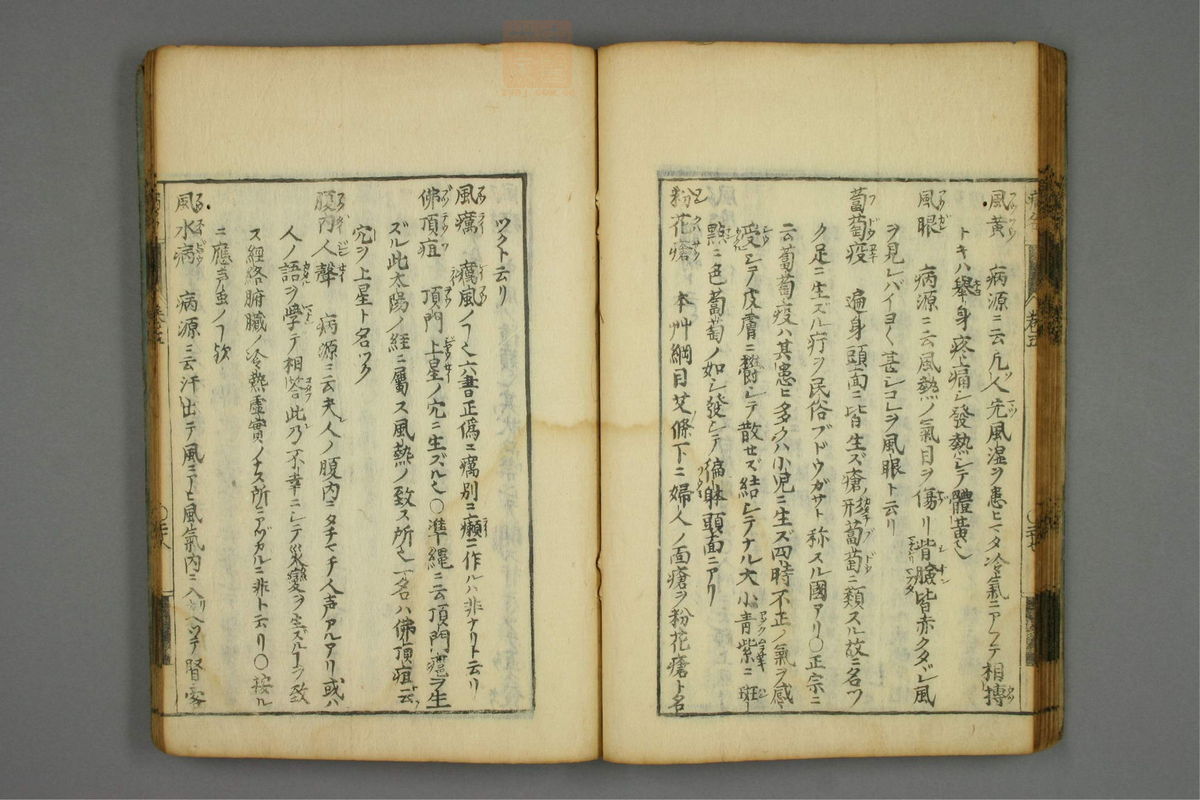 風黄 病源ニ云凡人先風湿ヲ患ヒマタ冷氣ニアフテ相搏
トキハ擧身疼痛シ發熱シテ體黄也
風眼 病源ニ云風熱ノ氣目ヲ傷リ眥瞼皆赤クタヾレ風
ヲ見レバイヨく甚シコレヲ風眼ト云リ
葡萄疫 遍身頭面ニ皆生ズ瘡形葡萄ニ類スル故ニ名ツ
ク足ニ生ズル疔ヲ民俗ブドウガサト称スル國アリ○正宗ニ
云葡萄疫ハ其患ヒ多クハ小児ニ生ズ四時不正ノ氣ヲ感
受シテ皮膚ニ欝シテ散セズ結シテナル大小青紫ニ斑
點ニ色葡萄ノ如シ發シテ徧躰頭面ニアリ
粉花瘡 本艸綱目艾條下ニ婦人ノ面瘡ヲ粉花瘡ト名
ツクト云リ
風癘 癘風ノフ也六書正偽ニ癘別ニ癩ニ作ルハ非ナリト云リ
佛頂疽 頂門上星ノ穴ニ生ズル也○凖繩ニ云頂門瘡ヲ生
ズル此太陽ノ経ニ屬ス風熱ノ致ス所也一名ハ佛頂疽云
穴ヲ上星ト名ツク
腹内人聲 病源ニ云夫人ノ腹内ニタチマチ人声アルアリ或ハ
人ノ語ヲ學テ相答此乃不幸ニシテ災變ヲ生ズルヿヲ致
ス経絡腑臓ノ冷熱虚實ノナス所ニアヅカルニ非ト云リ○按ル
ニ應声虫ノフ欤
風水病 病源ニ云汗出テ風ニアヒ風氣内ニ入